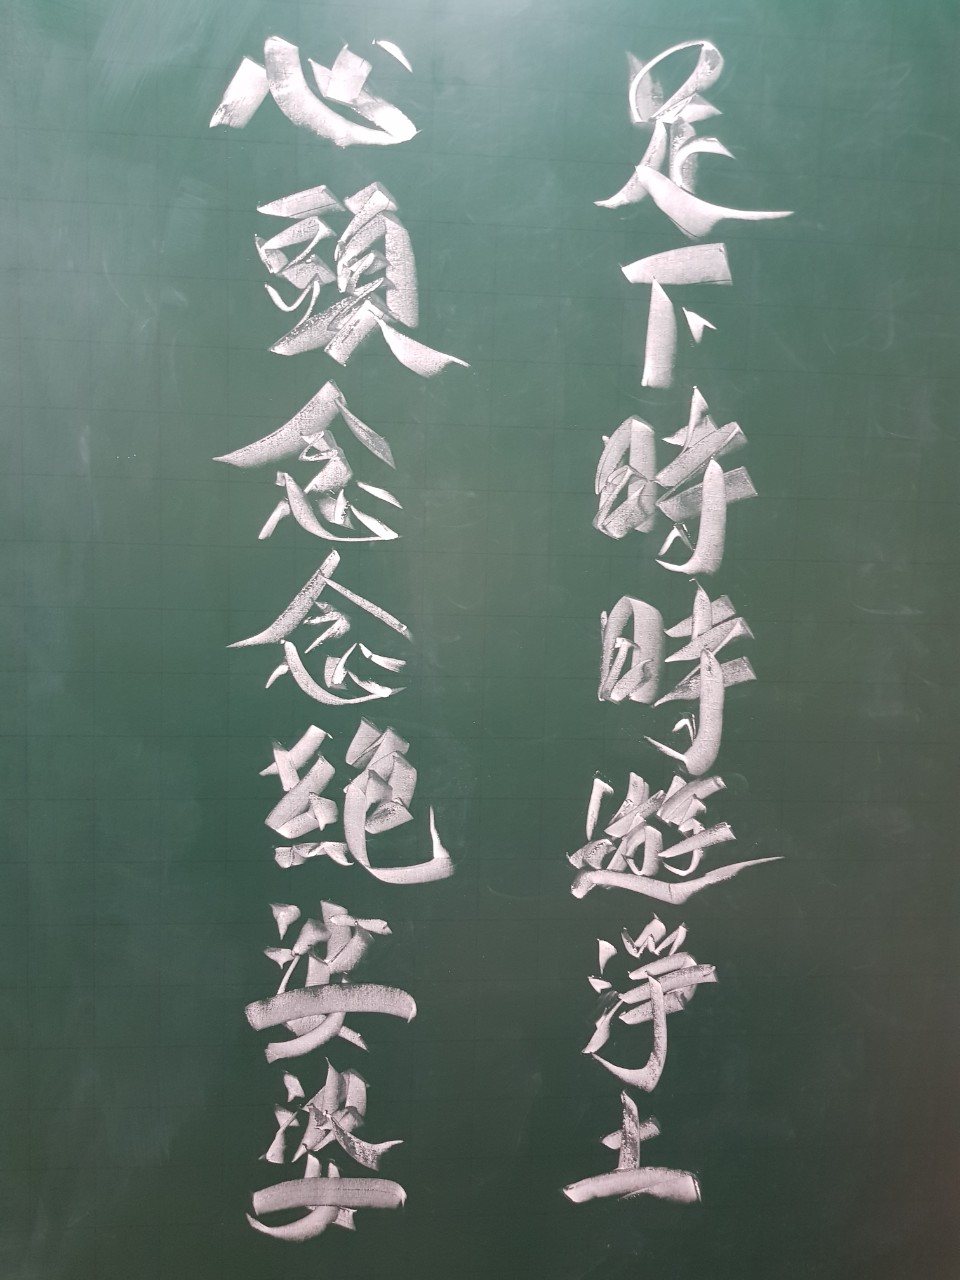 足下時時遊淨土
心頭念念絕娑婆